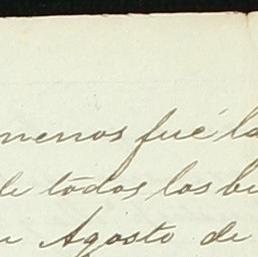 menos fué la
de todos los bu
Agosto de